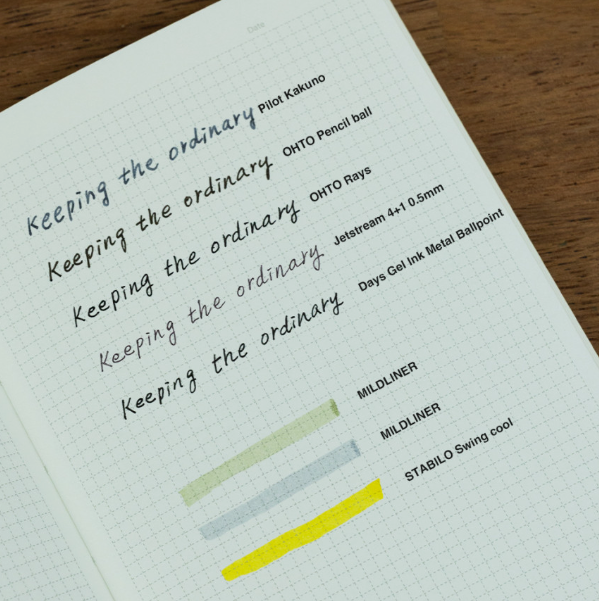 Date
Keeping the ordinary Pilot Kakuno
Keeping the ordinary OHTO Pencil ball
Keeping the ordinary OHTO Rays
Keeping the ordinary Jetstream 4+1 0.5mm
Keeping the ordinary Days Gel Ink Metal Ballpoint
MILDLINER
MILDLINER
STABILO Swing cool